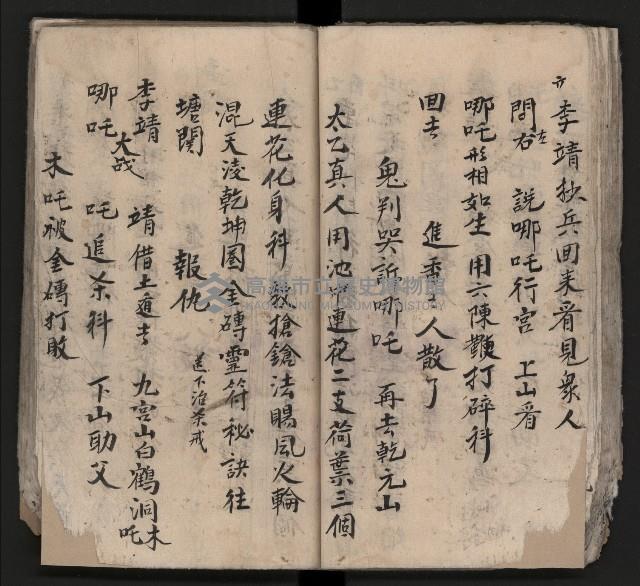 李靖狄兵回来看見衆人
問左右 說哪吒行宮 上山看
哪吒形相如生 用六陳鞭打碎科
回去 進香之人散了
鬼判哭訴哪吒 再去乾元山
太乙真人用池中連花二支荷葉三個
連花化身科 教搶鎗法賜風火輪
混天凌乾坤圈金磚靈符秘訣往
塘関 報仇 送下
李靖 靖借土遁去 九宮山白鶴洞木吒
哪吒 大战 吒追杀科 下山助父
木吒被金磚打敗
高雄市立歷史博物館
KAOHSIUNG MUSEUM OF HISTORY